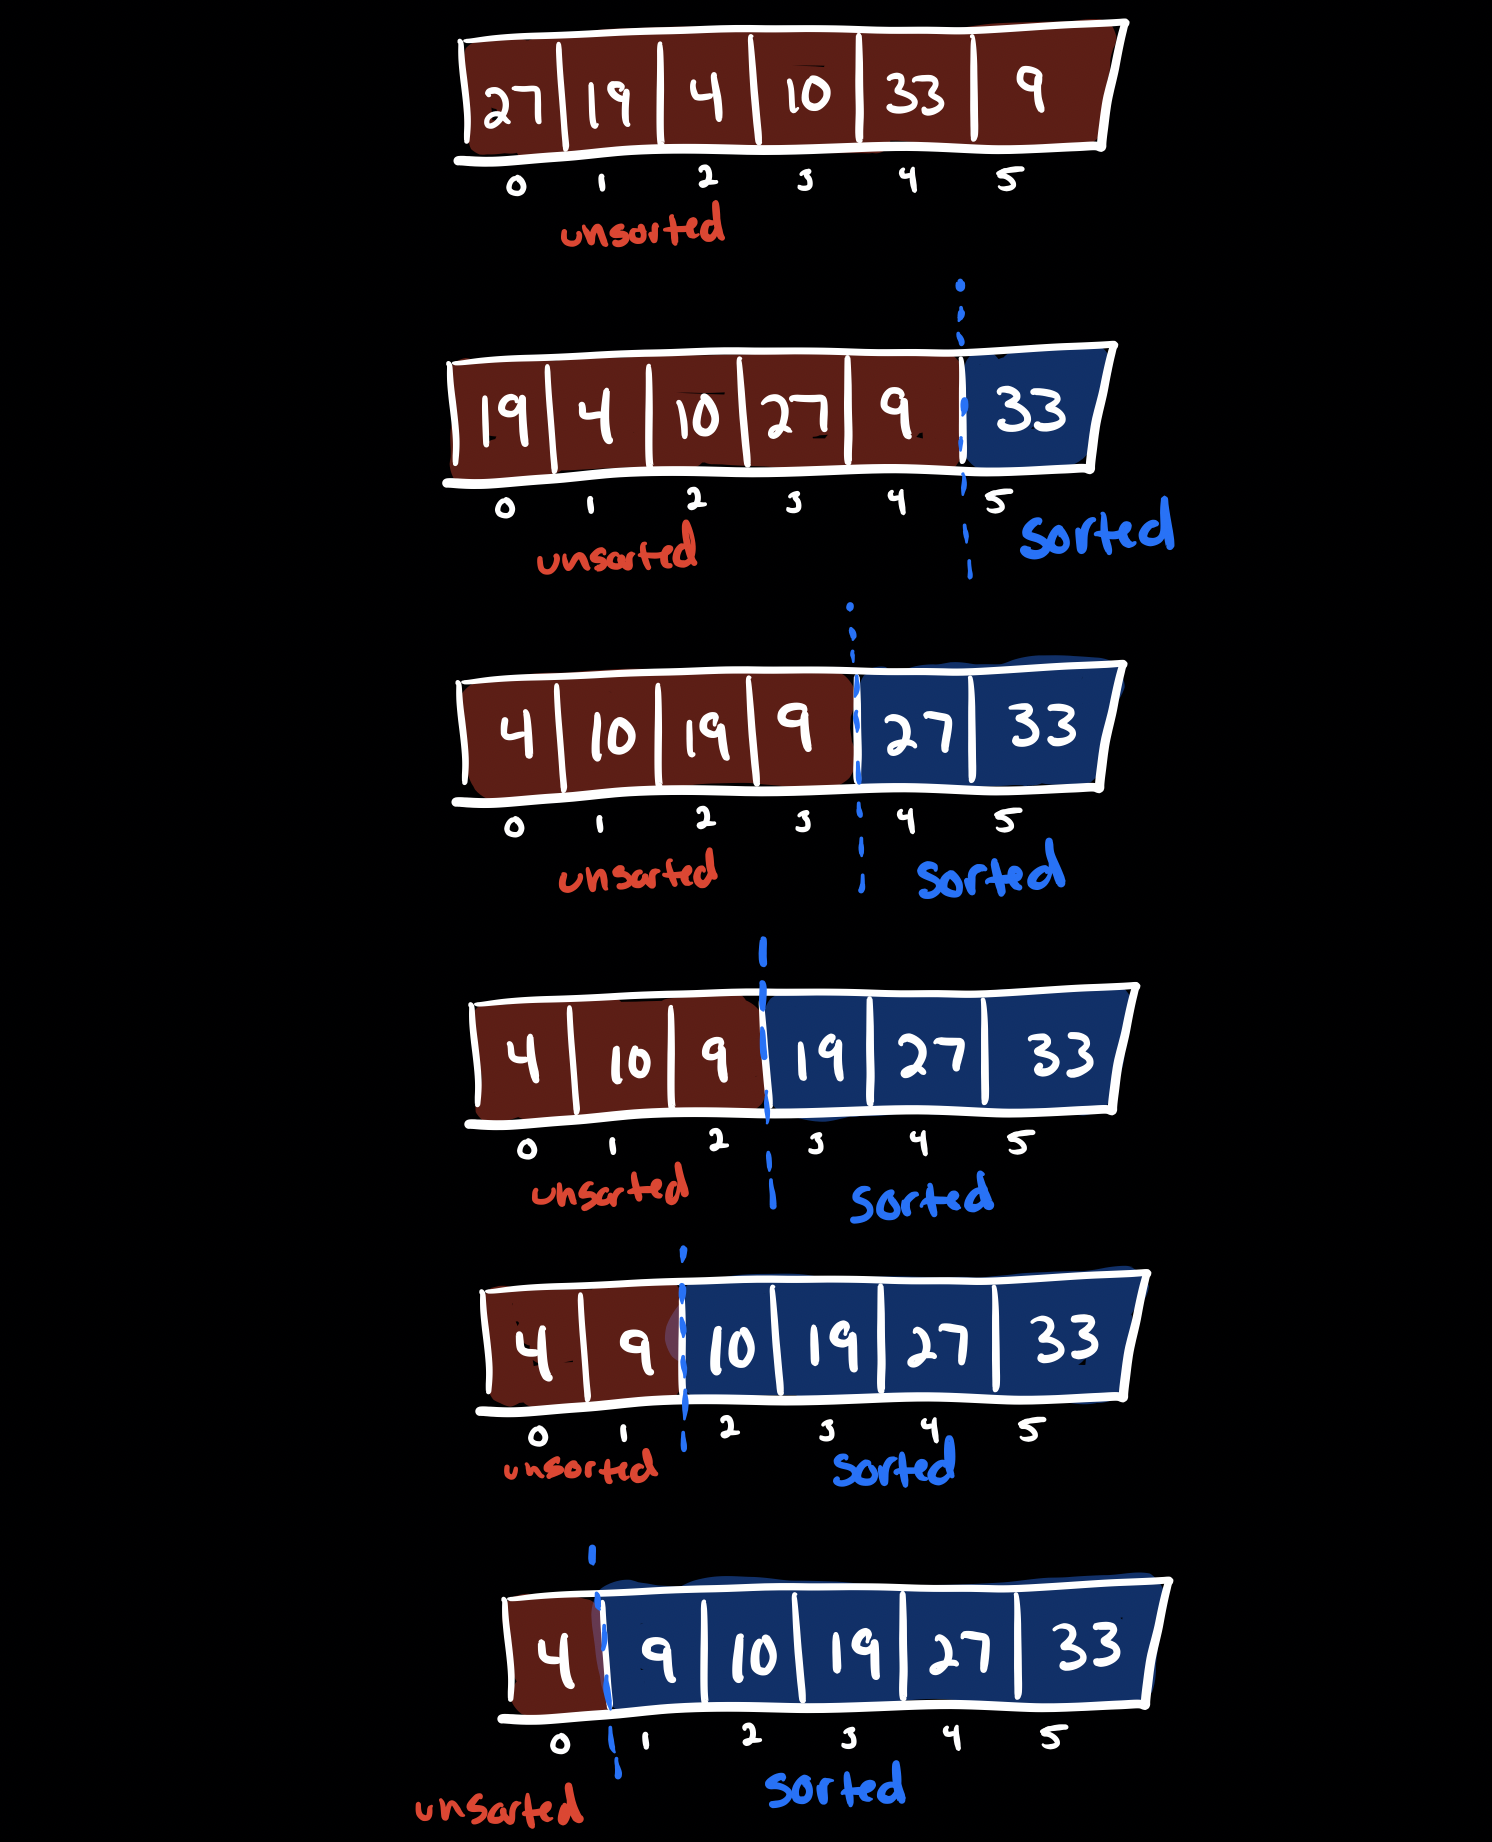 27 19 4 10 33 9
0 1 2 3 4 5
unsorted
19 4 10 27 9 33
0 1 2 3 4 5
unsorted sorted
4 10 19 9 27 33
0 1 2 3 4 5
unsorted sorted
4 10 9 19 27 33
0 1 2 3 4 5
unsorted sorted
4 9 10 19 27 33
0 1 2 3 4 5
unsorted sorted
4 9 10 19 27 33
0 1 2 3 4 5
unsorted sorted